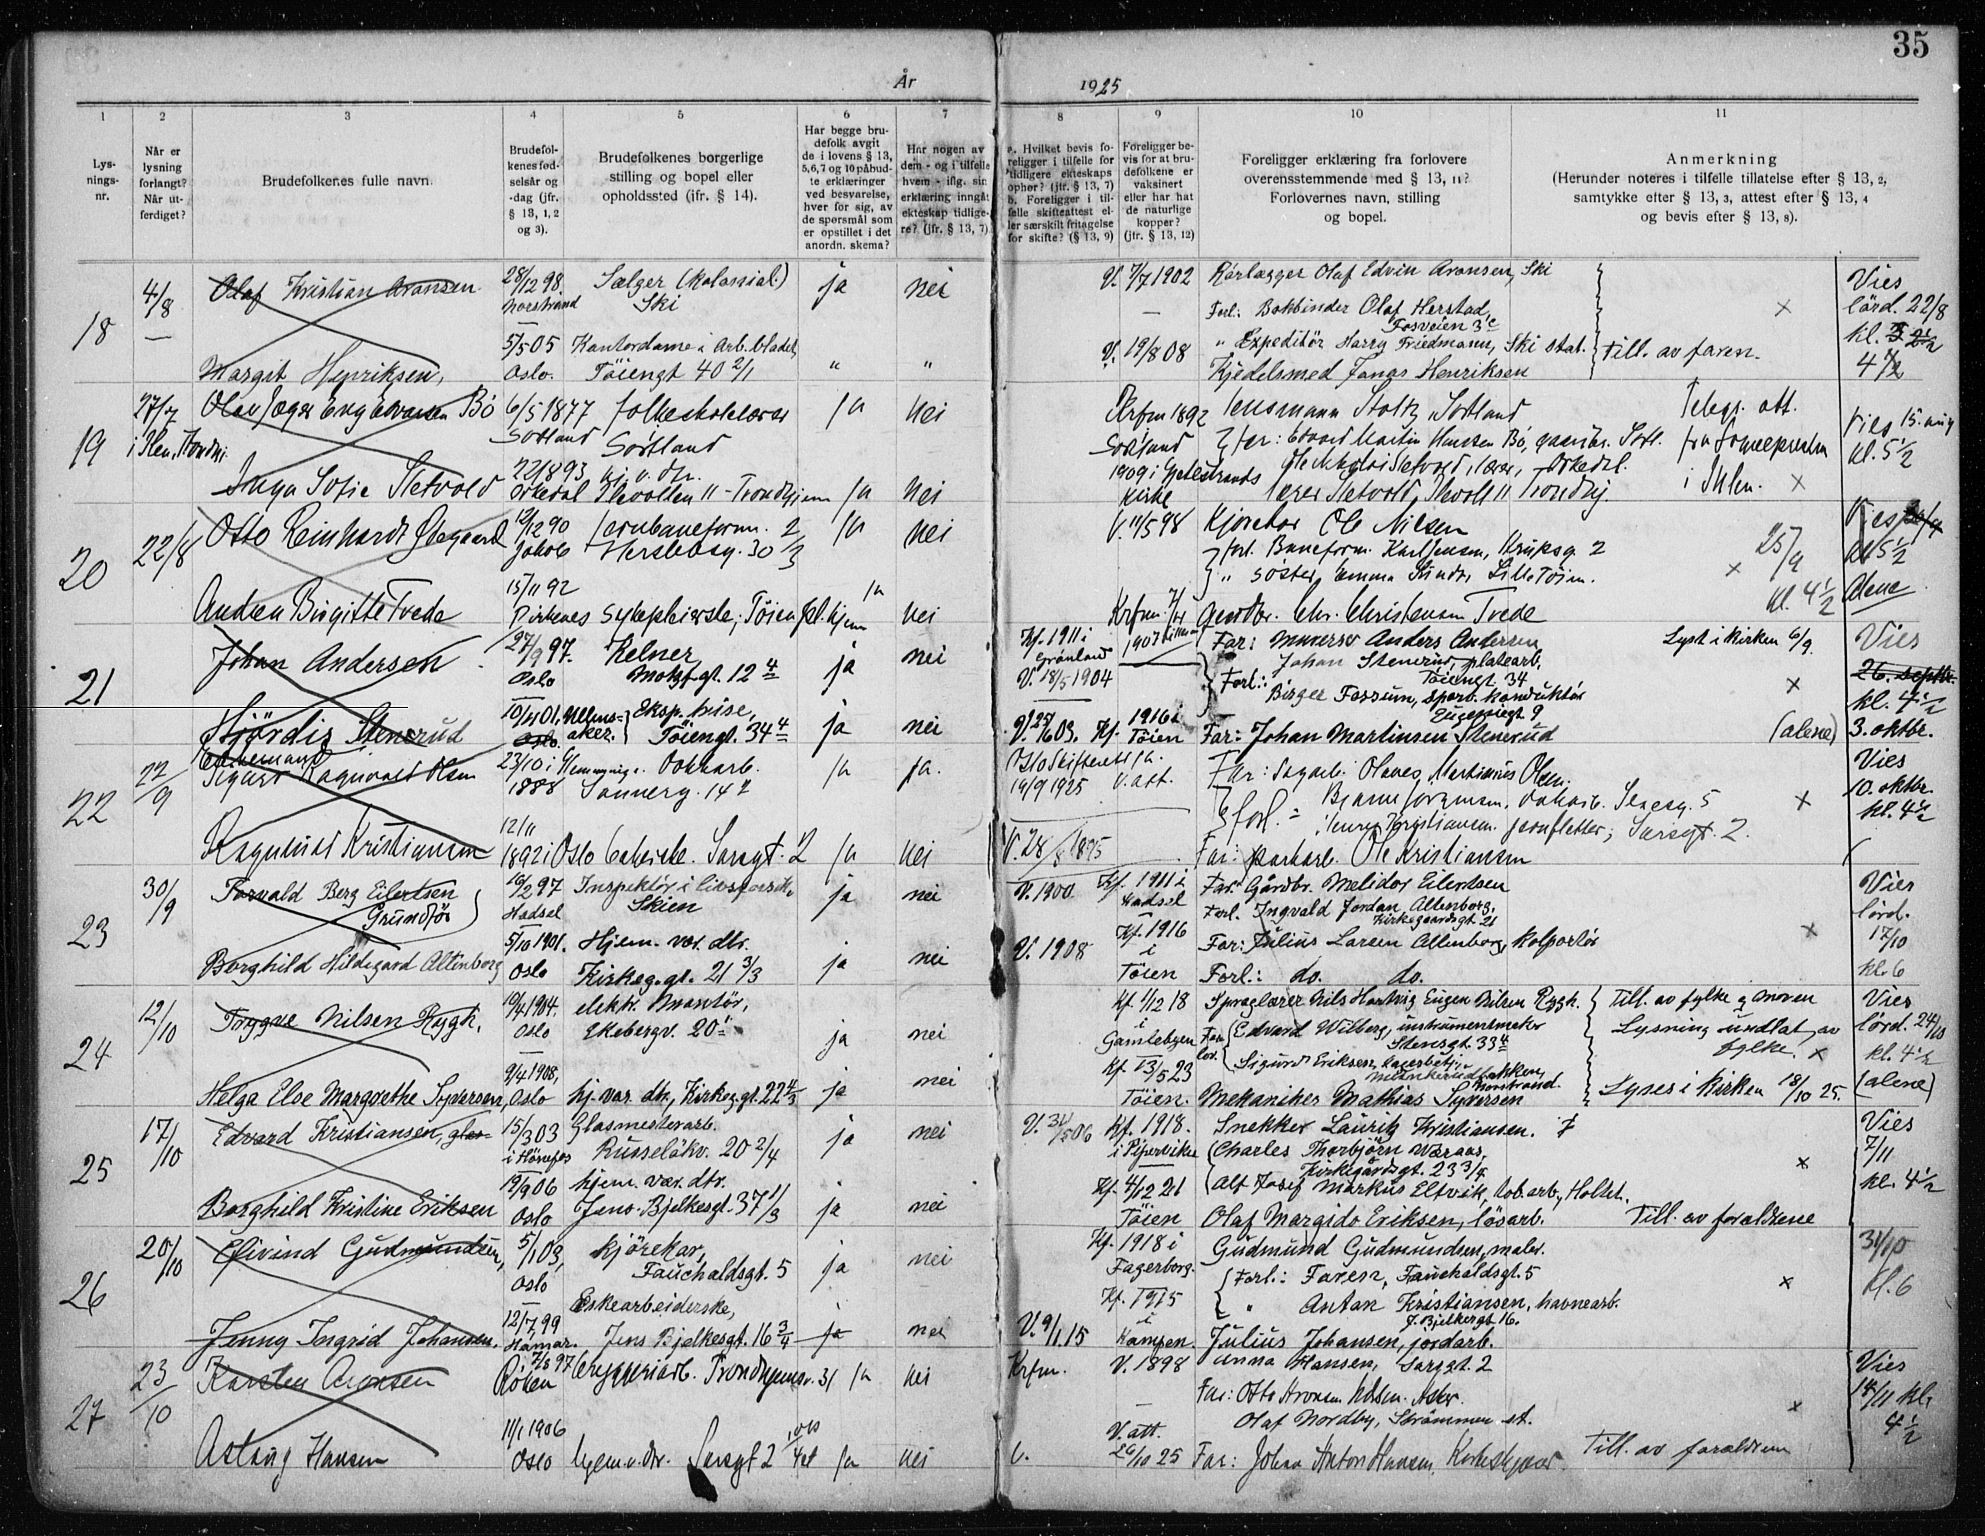 35
År 1925
1 2 3 4 5 6 7 8 9 10 11
Lysnings-nr.
Når er lysning forlangt? Når utferdiget?
Brudefolkenes fulle navn.
Brudefolkenes fødselsår og -dag (jfr. § 13, 1, 2 og 3).
Brudefolkenes borgerlige stilling og bopel eller opholdssted (jfr. § 14).
Har begge brudefolk avgit de i lovens § 13, 5, 6, 7 og 10 påbudte erklæringer ved besvarelse, hver for sig, av de spørsmål som er opstillet i det anordn. skema?
Har nogen av dem - og i tilfelle hvem - iflg. sin erklæring inngåt ekteskap tidligere? (jfr. § 13, 7)
a. Hvilket bevis foreligger i tilfelle for tidligere ekteskaps ophør? (jfr. § 13, 7) b. Foreligger i tilfelle skifteattest eller særskilt fritagelse for skifte? (§ 13, 9)
Foreligger bevis for at brudefolkene er vaksinert eller har hat de naturlige kopper? (jfr. § 13, 12)
Foreligger erklæring fra forlovere overensstemmende med § 13, 11? Forlovernes navn, stilling og bopel.
Anmerkning (Herunder noteres i tilfelle tillatelse efter § 13, 2, samtykke efter § 13, 3, attest efter § 13, 4 og bevis efter § 13, 8).
18 4/8 Olaf Kristian Aronsen 28/12 98. Norstrand Sælger (kolonial.) Ski ja nei V. 7/7 1902 Rørlægger Olaf Edvin Aronsen, Ski
— Forl: Bokbinder Olaf Herstad, Fosveien 3c
" Expeditør Harry Friedmann, Ski stat.
Vies lørd. 22/8 kl. 4 1/2
Margit Henriksen, 5/5 05 Oslo. Kontordame i Arb.bladet, Töiengt 40 2/1 " " V. 19/8 08 Kjedelsmed Jonas Henriksen Till. av faren.
19 27/7 Olav Jæger Bø 6/5 1877 Sortland folkeskolelærer Sortland ja nei 1892 Lensmann Stoltz, Sortland
Sortland far: Edvard Martin Hansen Bø, Telegr. att. i Vies 15. aug kl. 5 1/2
Inga Sofie Sletvold 1893 Orkedal Trondhjem ja nei 1909 i kirke
20 22/8 Otto Reinhardt Ødegaard 12/12 90 Jakob Jernbaneform. Herslebsg. 30 2/3 ja nei V. 11/5 98 Kjørekar Ole Nilsen
forl. Baneform. Karl Jensen, Kruksg. 2
" søster Emma Lille Tøien.
25/9 kl. 4 1/2 Vies kl 5 1/2 Alene
Andrea Birgitte Tvede 15/11 92 Birkenes Sykepleierske, Tøien ja nei Krfm. 1907 Gårdbr. Chr. Christensen Tvede
21 Johan Andersen 27/9 97. Oslo Kelner, Motzf.gt. 12 4 ja nei Kf. 1911 i Grønland V. 18/5 1904 Far: Murersv Anders Andersen
Forl.: Johan Stenerud, platearb, Töiengt 34
Birger Fossum, sporv. konduktør Eugeniegt 9
Lyst i kirken 6/9 Vies 26. septbr. kl. 4 1/2
Hjördis Stenerud 10/11 01. Oslo. Eksp.trise, Töiengt. 34 4 ja nei Kf. 1916 i Töien Far: Johan Martinsen Stenerud (alene) 3. oktbr.
22 22/9 Sigurd Ragnvald Olsen 23/10 1888 Dokkarb. Sannerg. 14 2 ja ja. Oslo Skifterett 19/9 1925 V. att. Far: Sagarb. Olaves Martinius Olsen
forl. Bjarne Jörgensen
Henry Kristiansen Sarsgt. 2.
Vies 10. oktbr. kl. 4 1/2
Ragnhild Kristiansen 12/11 1892 i Oslo Sarsgt. 2 ja nei V. 28/8 1895 Far: Parkarb. Ole Kristiansen
23 30/9 Torvald Berg Eilertsen Grundför 16/2 97 Hadsel Inspektør i livsforsik. Skien ja nei V. 1900 Kf. 1911 i Hadsel Far: Gårdbr. Melidor Eilertsen
Forl. Ingvald Jordan Altenborg, Kirkegaardsgt. 21
Vies lørd. 17/10 kl. 6
Borghild Hildegard Altenborg 5/10 1901. Oslo Hjem. vær. dtr. Kirkeg.gt. 21 3/3 ja nei V. 1908 Kf. 1916 i Töien Far: Julius Larsen Altenborg, kolportør
Forl.: do. do.
24 12/10 Trygve Nilsen Rygh. 10/4 1904. Oslo elektr. montør, Ekebergv. 20 ja nei Kf. 1/12 18 i Gamlebyen Sproglærer Nils Hartvig Eugen Nilsen Rygh.
Forlov. Edvard Wilberg, instrumentmaker Stensgt. 33 4
Sigurd Eriksen, lagerbetj., Norstrand.
Till. av fylke g moren Lysning undlat. av fylke. Vies lørd. 24/10 kl. 4 1/2 (alene)
Helga Else Margrethe Syversen, 9/4 1908, Oslo hj. vær. dtr., Kirkeg.gt. 22 4/3 ja nei Kf. 13/5 23 Töien. Mekaniker Mathias Syversen Lyses i kirken 18/10 25.
25 17/10 Edvard Kristiansen, glas- 15/3 03 i Hönefos Glasmesterarb. Russeløkv. 20 2/4 ja nei V. 31/5 06 Kf. 1918. i Pipervika Snekker Lauritz Kristiansen.
Charles Thorbjörn Waraas, Kirkegårdsgt. 23 3/9
Alf Josef Markus Eltvik, tob. arb., Holtet.
Vies 7/11 kl. 4 1/2
Borghild Kristine Eriksen 19/9 06 Oslo hjem. vær. dtr. Jens Bjelkesgt. 37 1/3 ja nei Kf. 4/12 21 Töien Olaf Margido Eriksen, løsarb. Till. av foreldrene
26 20/10 Eivind Gudmundsen, 5/1 03, Oslo kjörekar, Fauchaldsgt. 5 ja nei Kf. 1918 i Fagerborg. Gudmund Gudmundsen, maler.
Forl.: Faren, Fauchaldsgt. 5
" Anton Kristiansen, havnearb. J. Bjelkesgt 16.
31/10 kl. 6
Jenny Ingrid Johansen. 12/7 99 Hamar. Eskearbeiderske, Jens Bjelkesgt. 16 3/4 ja nei V. 9/1 15 Kf. 1915 i Kampen. Julius Johansen, jordarb.
27 23/10 Karsten Aronsen 7/8 97 Röken bryggeriarb. Trondhjemsv. 31 ja nei Krfm. V. 1898 Anna Hansen, Sarsgt. 2
Far: Otto Aronsen
Olaf Nordby, Strømmen st.
Vies 14/11 kl. 4 1/2
Aslaug Hansen 11/1 1906 Oslo hjem.v.dtr. Sarsgt 2 ja nei V. V. att. 26/10 25 Far: Johan Anton Hansen, Till. av foreldrene